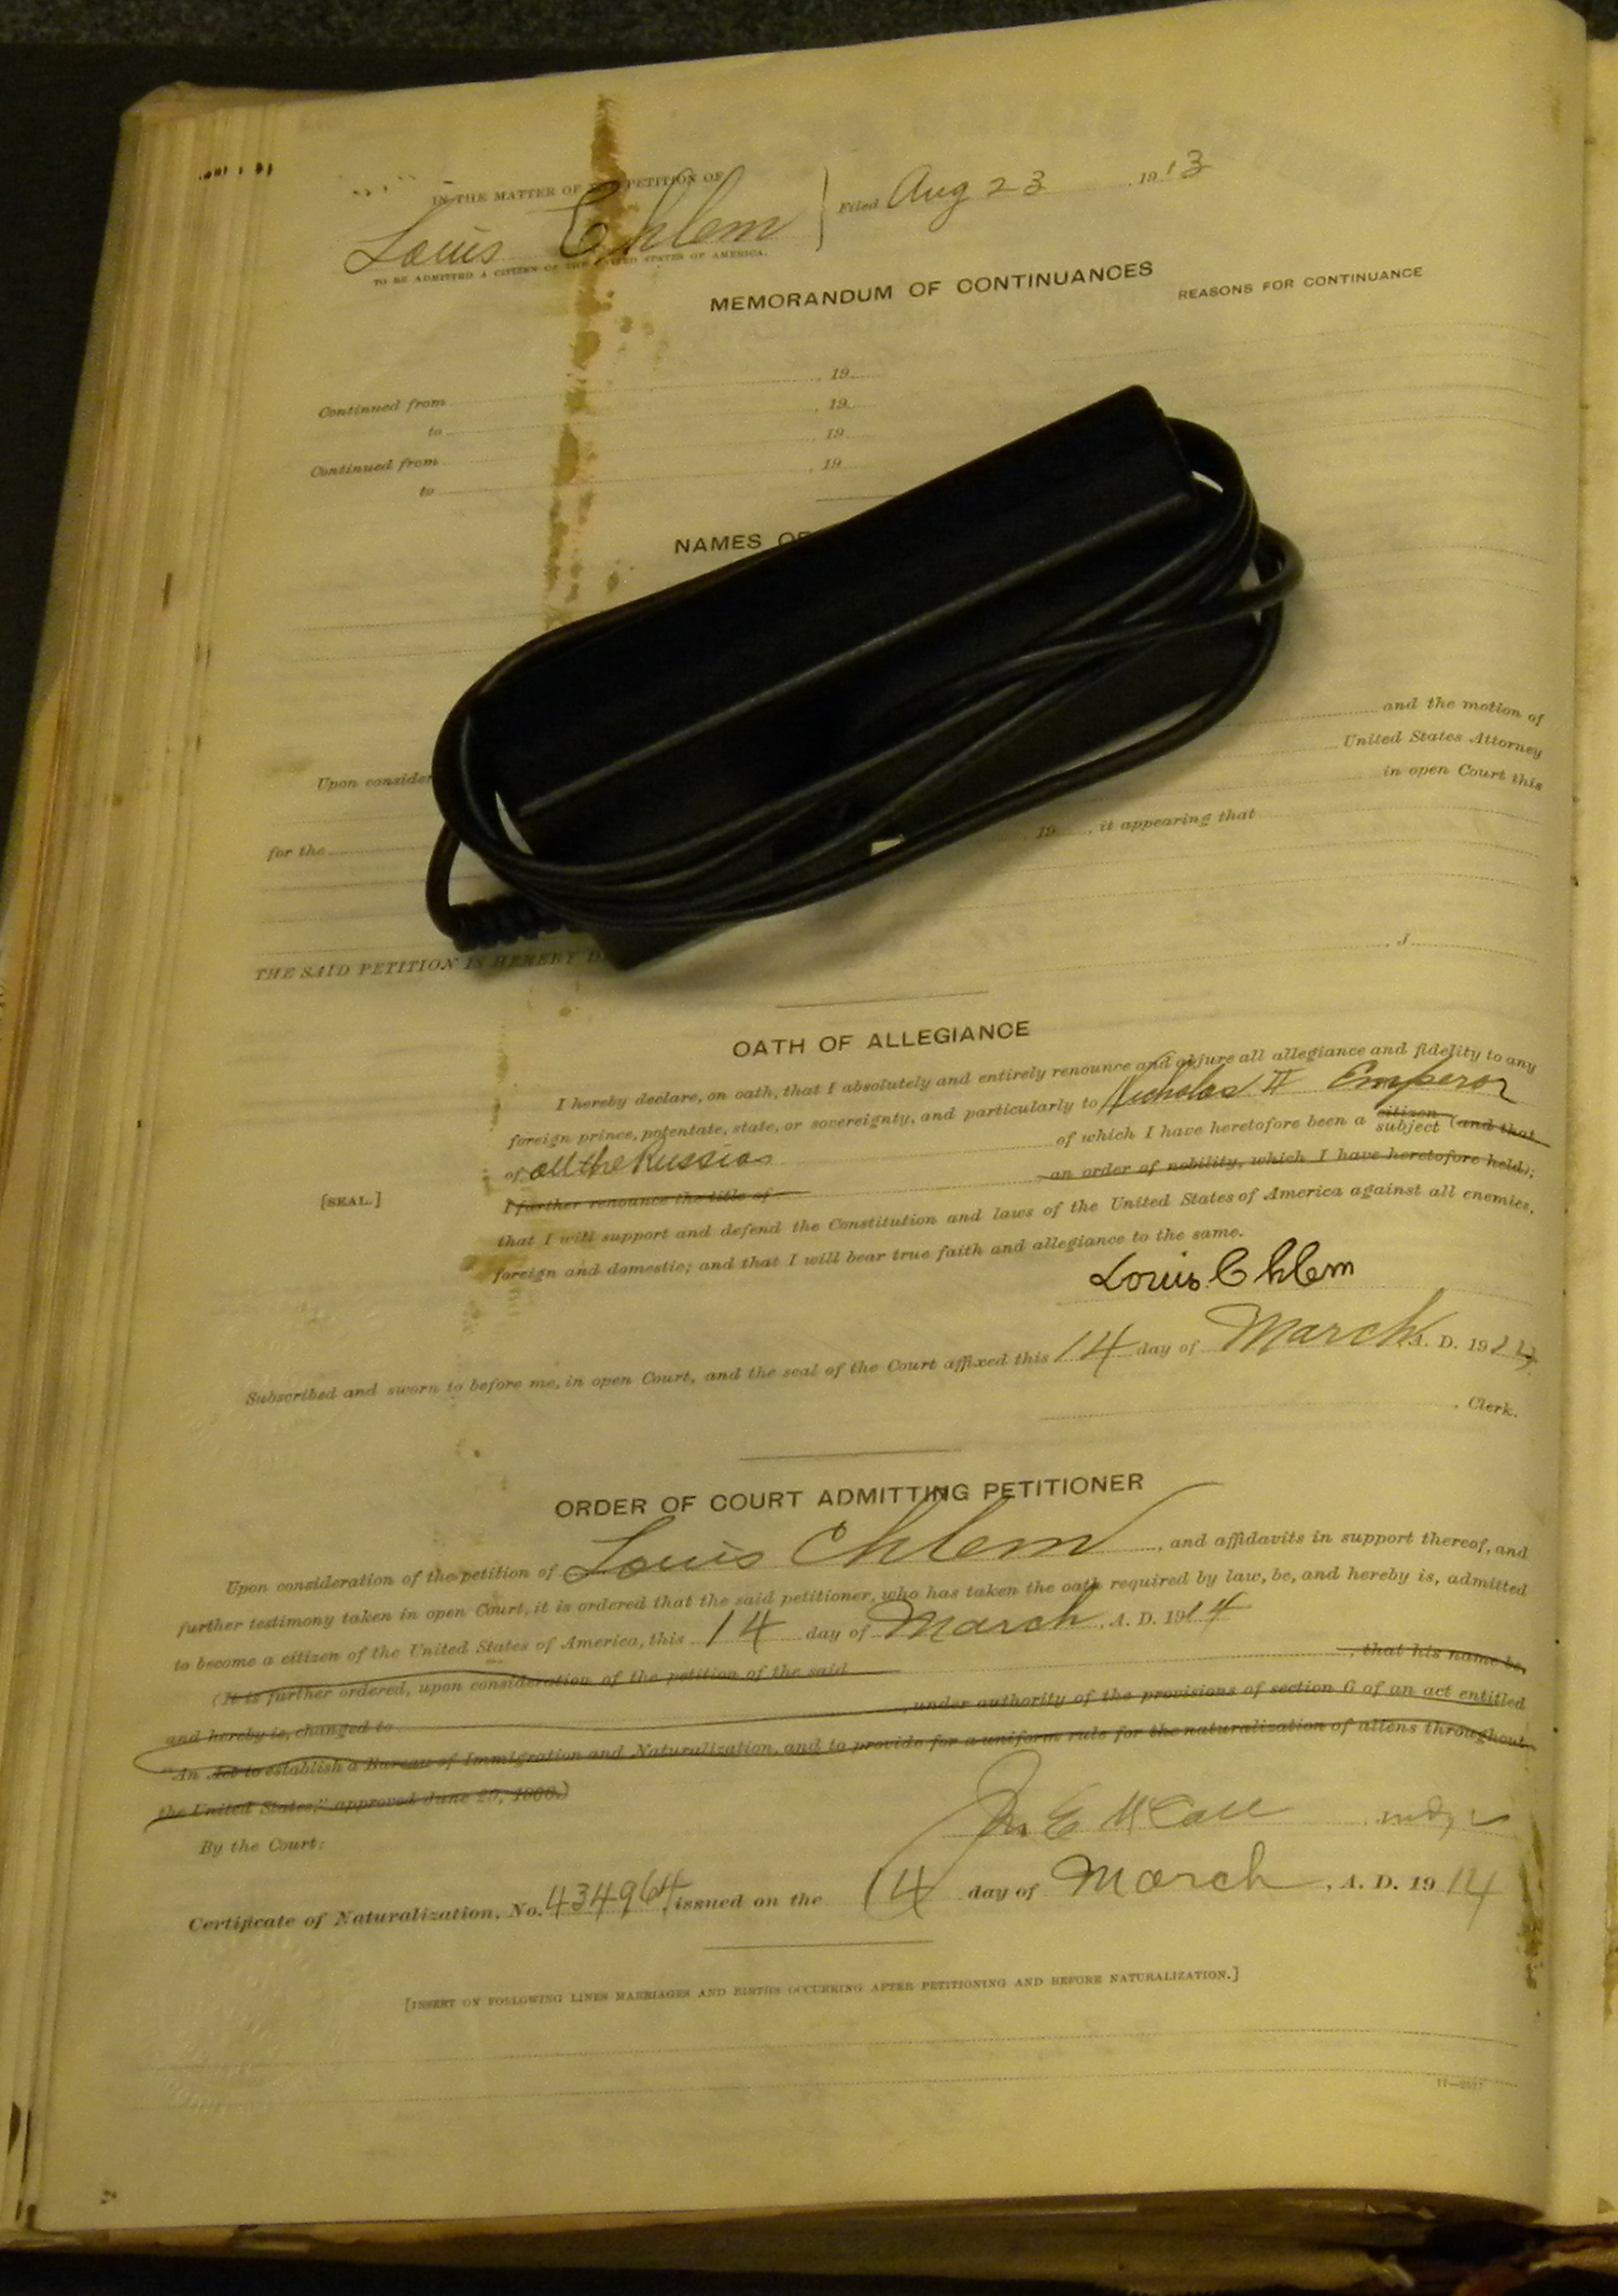 IN THE MATTER OF THE PETITION OF
Louis Chlem
Filed Aug 23, 1913
TO BE ADMITTED A CITIZEN OF THE UNITED STATES OF AMERICA.
MEMORANDUM OF CONTINUANCES
REASONS FOR CONTINUANCE
Continued from , 19
to , 19
Continued from , 19
to , 19
NAMES OF
and the motion of
Upon consider United States Attorney
for the in open Court this
19 , it appearing that
THE SAID PETITION IS HEREBY D , J
OATH OF ALLEGIANCE
I hereby declare, on oath, that I absolutely and entirely renounce and abjure all allegiance and fidelity to any
foreign prince, potentate, state, or sovereignty, and particularly to Nicholas II Emperor
of all the Russias of which I have heretofore been a citizen subject (and that
[SEAL.] I further renounce the title of an order of nobility, which I have heretofore held);
that I will support and defend the Constitution and laws of the United States of America against all enemies,
foreign and domestic; and that I will bear true faith and allegiance to the same.
Louis Chlem
Subscribed and sworn to before me, in open Court, and the seal of the Court affixed this 14 day of March A. D. 1914
, Clerk.
ORDER OF COURT ADMITTING PETITIONER
Upon consideration of the petition of Louis Chlem, and affidavits in support thereof, and
further testimony taken in open Court, it is ordered that the said petitioner, who has taken the oath required by law, be, and hereby is, admitted
to become a citizen of the United States of America, this 14 day of March, A. D. 1914
(It is further ordered, upon consideration of the petition of the said , that his name be,
and hereby is, changed to , under authority of the provisions of section 6 of an act entitled
"An Act to establish a Bureau of Immigration and Naturalization, and to provide for a uniform rule for the naturalization of aliens throughout
the United States," approved June 29, 1906.)
By the Court: Jn. E McCall
Certificate of Naturalization, No. 434964 issued on the 14 day of March, A. D. 1914
[INSERT ON FOLLOWING LINES MARRIAGES AND BIRTHS OCCURRING AFTER PETITIONING AND BEFORE NATURALIZATION.]